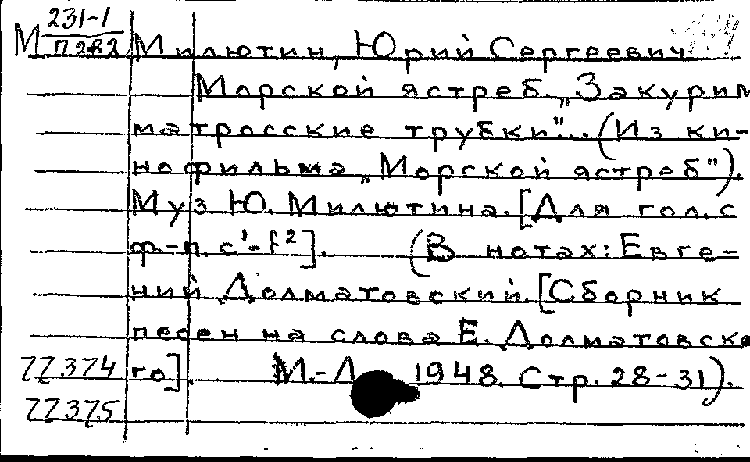 М 231-1
П 282
Милютин, Юрий Сергеевич
Морской ястреб. „Закурим
матросские трубки"... (Из ки-
нофильма „Морской ястреб").
Муз Ю. Милютина. [Для гол. с
ф.-п. c¹-f²]. (В нотах: Евге-
ний Долматовский. [Сборник
песен на слова Е. Долматовско
77374 го]. М.-Л 1948. Стр. 28-31).
77375